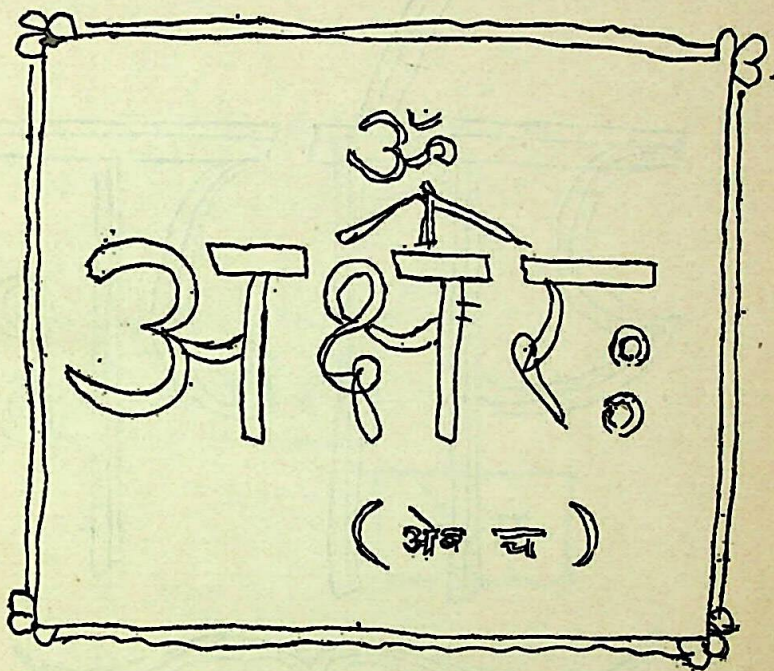 ॐ
अक्षरः
(ओब च)